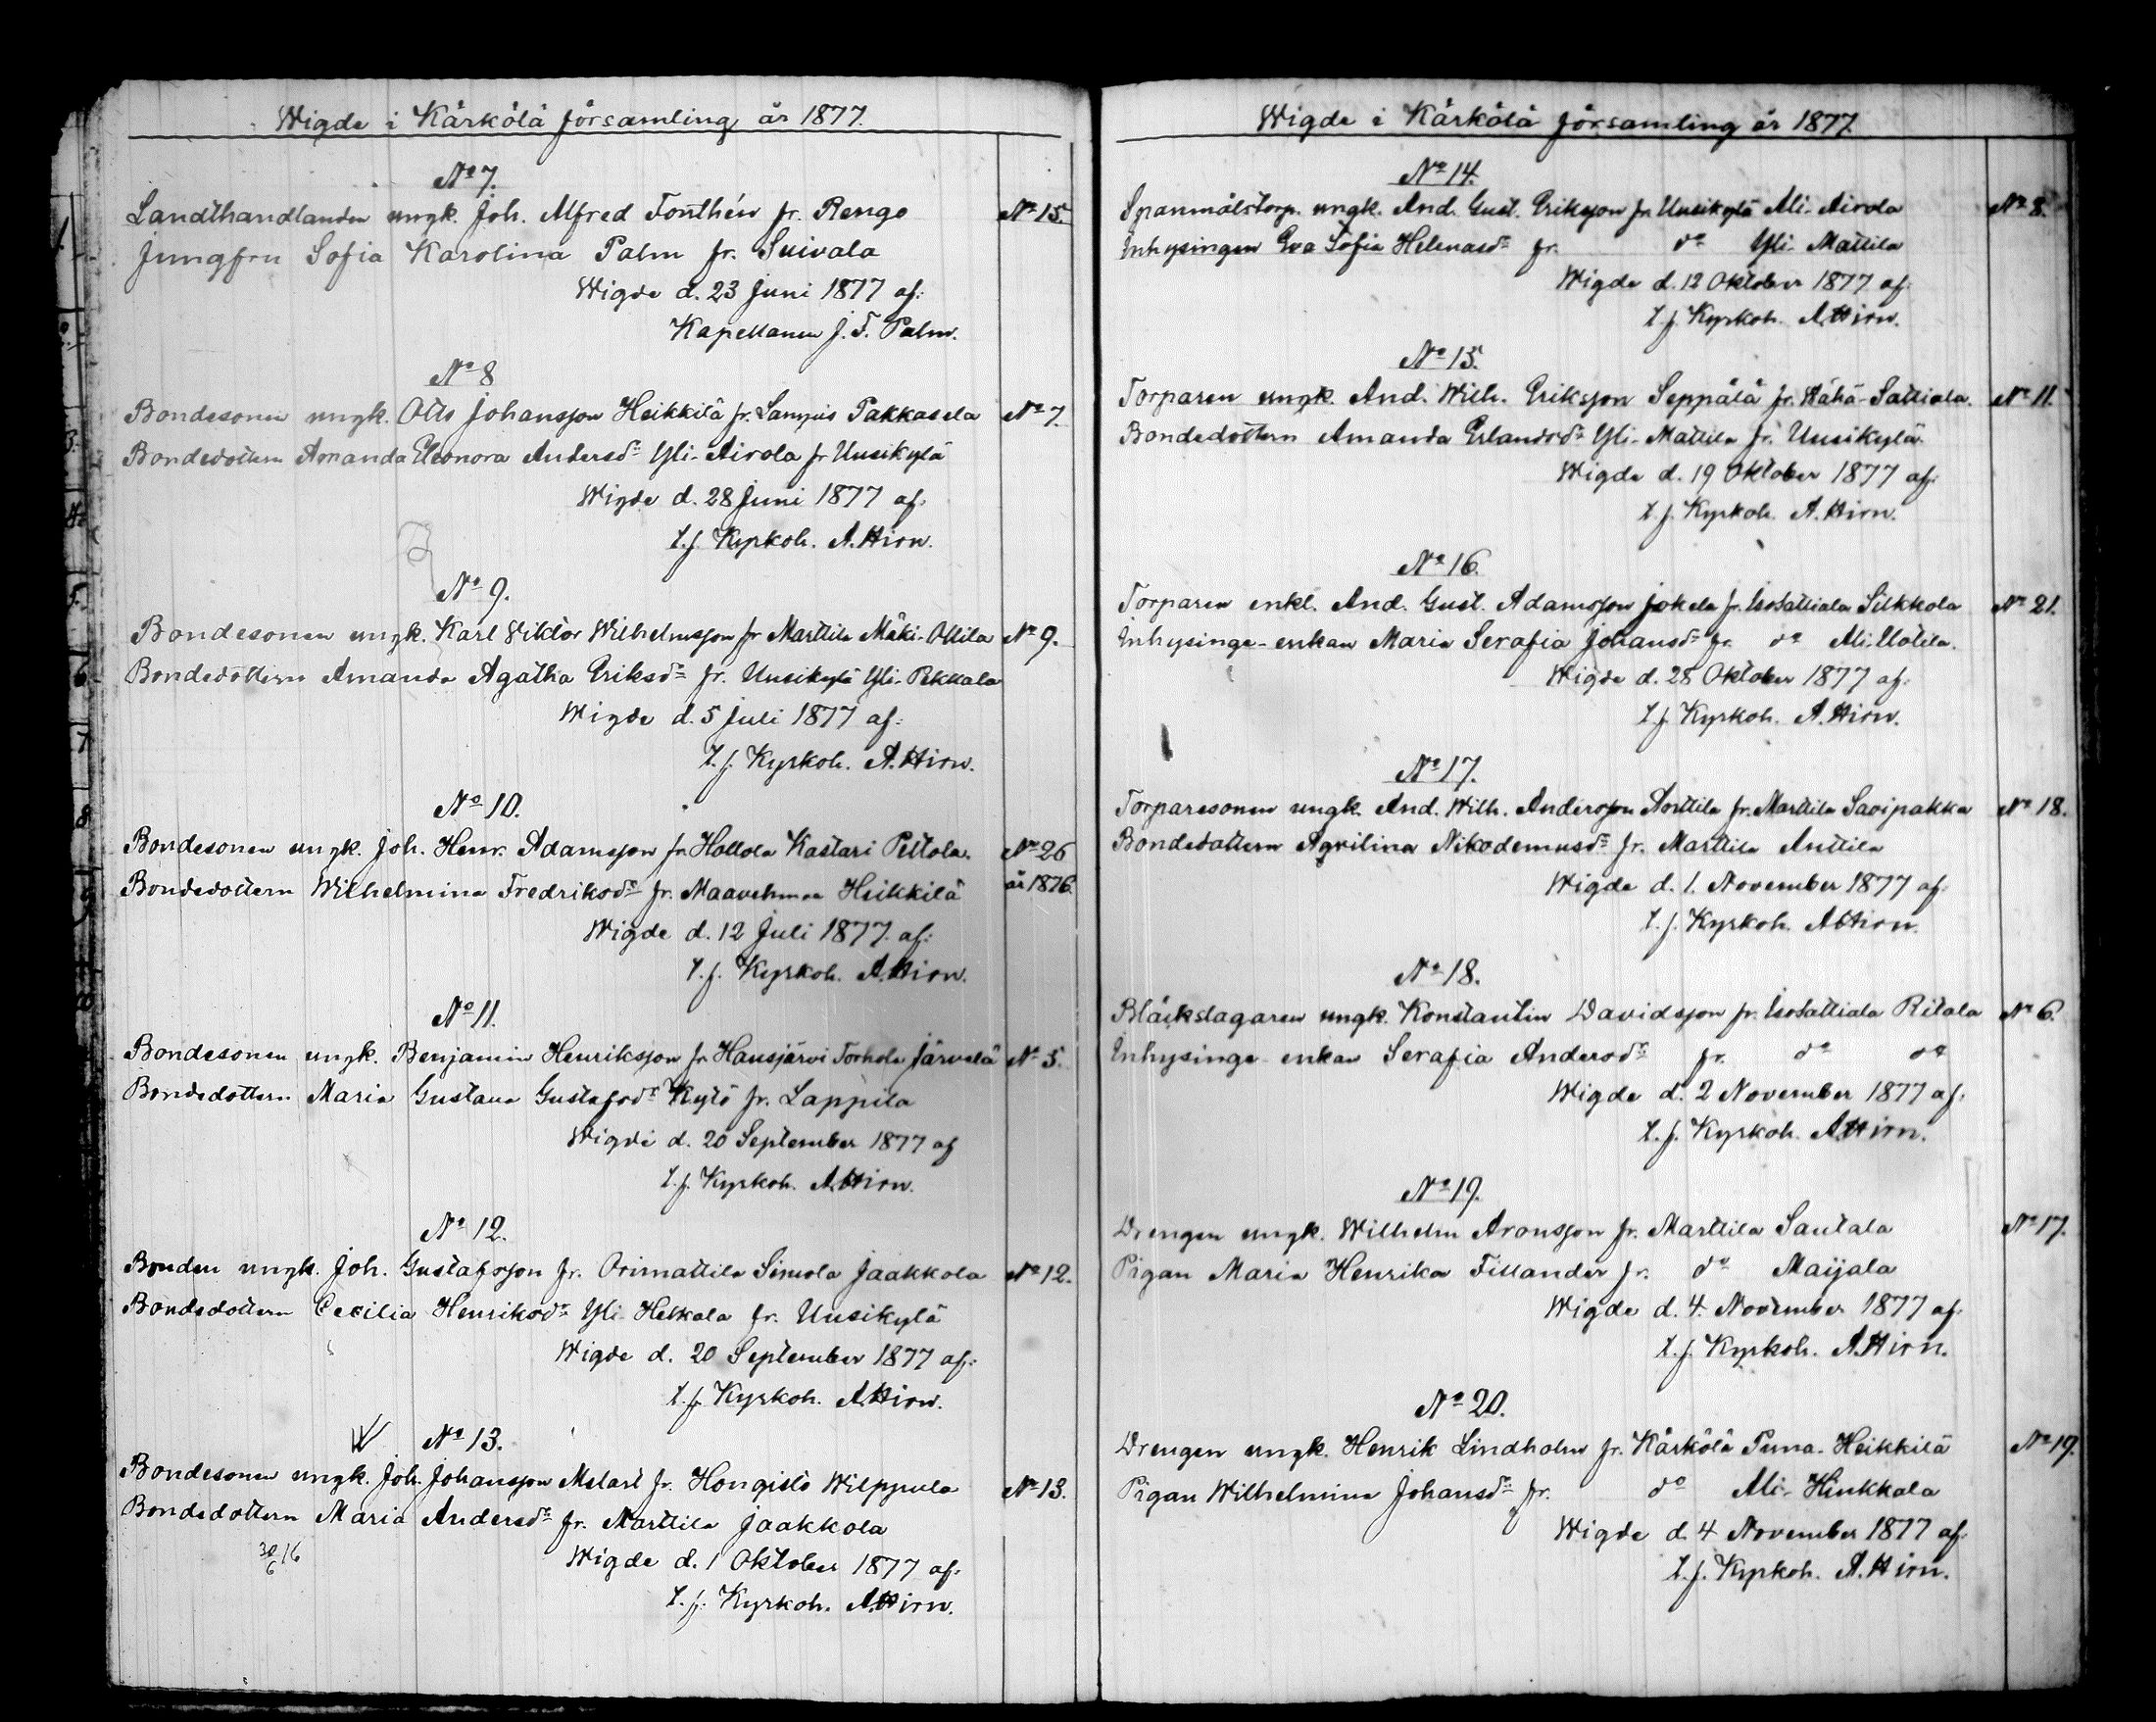 Wigde i Kärkölä församling år 1877.
No 7.
Landthandlanden ungk. Joh. Alfred Fonthén fr. Rengo No 15.
Jungfru Sofia Karolina Palm fr. Suivala
Wigde d. 23 Juni 1877 af:
Kapellanen J. F. Palm.
No 8
Bondesonen ungk. Otto Johansson Heikkilä fr. Lampis Pakkasela No 7.
Bondedottern Amanda Eleonora Andersdr Yli-Airola fr Uusikylä
Wigde d. 28 Juni 1877 af:
t.f. Kyrkoh. A. Hirn.
No 9.
Bondesonen ungk. Karl Viktor Wilhelmsson fr Marttila Mäki-Ottila No 9.
Bondedottern Amanda Agatha Eriksdr fr. Uusikylä Yli-Pekkala
Wigde d. 5 Juli 1877 af:
t.f. Kyrkoh. A. Hirn.
No 10.
Bondesonen ungk. Joh. Henr. Adamsson fr. Hollola Kastari Peltola. No 26
Bondedottern Wilhelmina Fredriksdr fr. Maavehmaa Heikkilä år 1876.
Wigde d. 12 Juli 1877. af:
t.f. Kyrkoh. A. Hirn.
No 11.
Bondesonen ungk. Benjamin Henriksson fr Hausjärvi Torhola Järvelä No 5.
Bondedottern Maria Gustava Gustafsdr Kytö fr. Lappila
Wigde d. 20 September 1877 af
t.f. Kyrkoh. A. Hirn.
No 12.
Bonden ungk. Joh. Gustafsson fr. Orimattila Simola Jaakkola No 12.
Bondedottern Cecilia Henriksdr Yli-Heikkala fr. Uusikylä
Wigde d. 20 September 1877 af:
t.f. Kyrkoh. A. Hirn.
No 13.
Bondesonen ungk. Joh. Johansson Mstart fr. Hongisto Wilppula No 13.
Bondedottern Maria Andersdr fr. Marttila Jaakkola
30/6 16
Wigde d. 1 Oktober 1877 af:
t.f. Kyrkoh. A. Hirn.
Wigde i Kärkölä församling år 1877.
No 14.
Spanmålstorp. ungk. And. Gust. Eriksson fr. Uusikylä Ali-Airola No 8.
Inhysingen Eva Sofia Helenasdr fr. do Yli-Mattila
Wigde d. 12 Oktober 1877 af:
t.f. Kyrkoh. A. Hirn.
No 15.
Torparen ungk. And. Wilh. Eriksson Seppälä fr. Wähä-Sattiala. No 11.
Bondedottern Amanda Erlandsdr Yli-Mattila fr. Uusikylä.
Wigde d. 19 Oktober 1877 af:
t.f. Kyrkoh. A. Hirn.
No 16.
Torparen enkl. And. Gust. Adamsson Jokela fr. Iso Sattiala Silkkola No 21.
Inhysinge-enkan Maria Serafia Johansdr fr. do Ali-Uotila.
Wigde d. 28 Oktober 1877 af:
t.f. Kyrkoh. A. Hirn.
No 17.
Torparesonen ungk. And. Wilh. Andersson Anttila fr. Marttila Savipakka No 18.
Bondedottern Aqvilina Nikodemusdr fr. Marttila Anttila
Wigde d. 1. November 1877 af:
t.f. Kyrkoh. A Hirn.
No 18.
Bläckslagaren ungk. Konstantin Davidsson fr. Iso Sattiala Ritala No 6.
Inhysinge-enkan Serafia Andersdr fr. do do
Wigde d. 2 November 1877 af:
t.f. Kyrkoh. A. Hirn.
No 19.
Drengen ungk. Wilhelm Aronsson fr. Marttila Sautala No 17.
Pigan Maria Henrika Fillander fr. do Maijala
Wigde d. 4. November 1877 af:
t.f. Kyrkoh. A. Hirn.
No 20.
Drengen ungk. Henrik Lindholm fr. Kärkölä Puna-Heikkilä No 19.
Pigan Wilhelmina Johansdr fr. do Ali-Hinkkala
Wigde d. 4 November 1877 af:
t.f. Kyrkoh. A. Hirn.